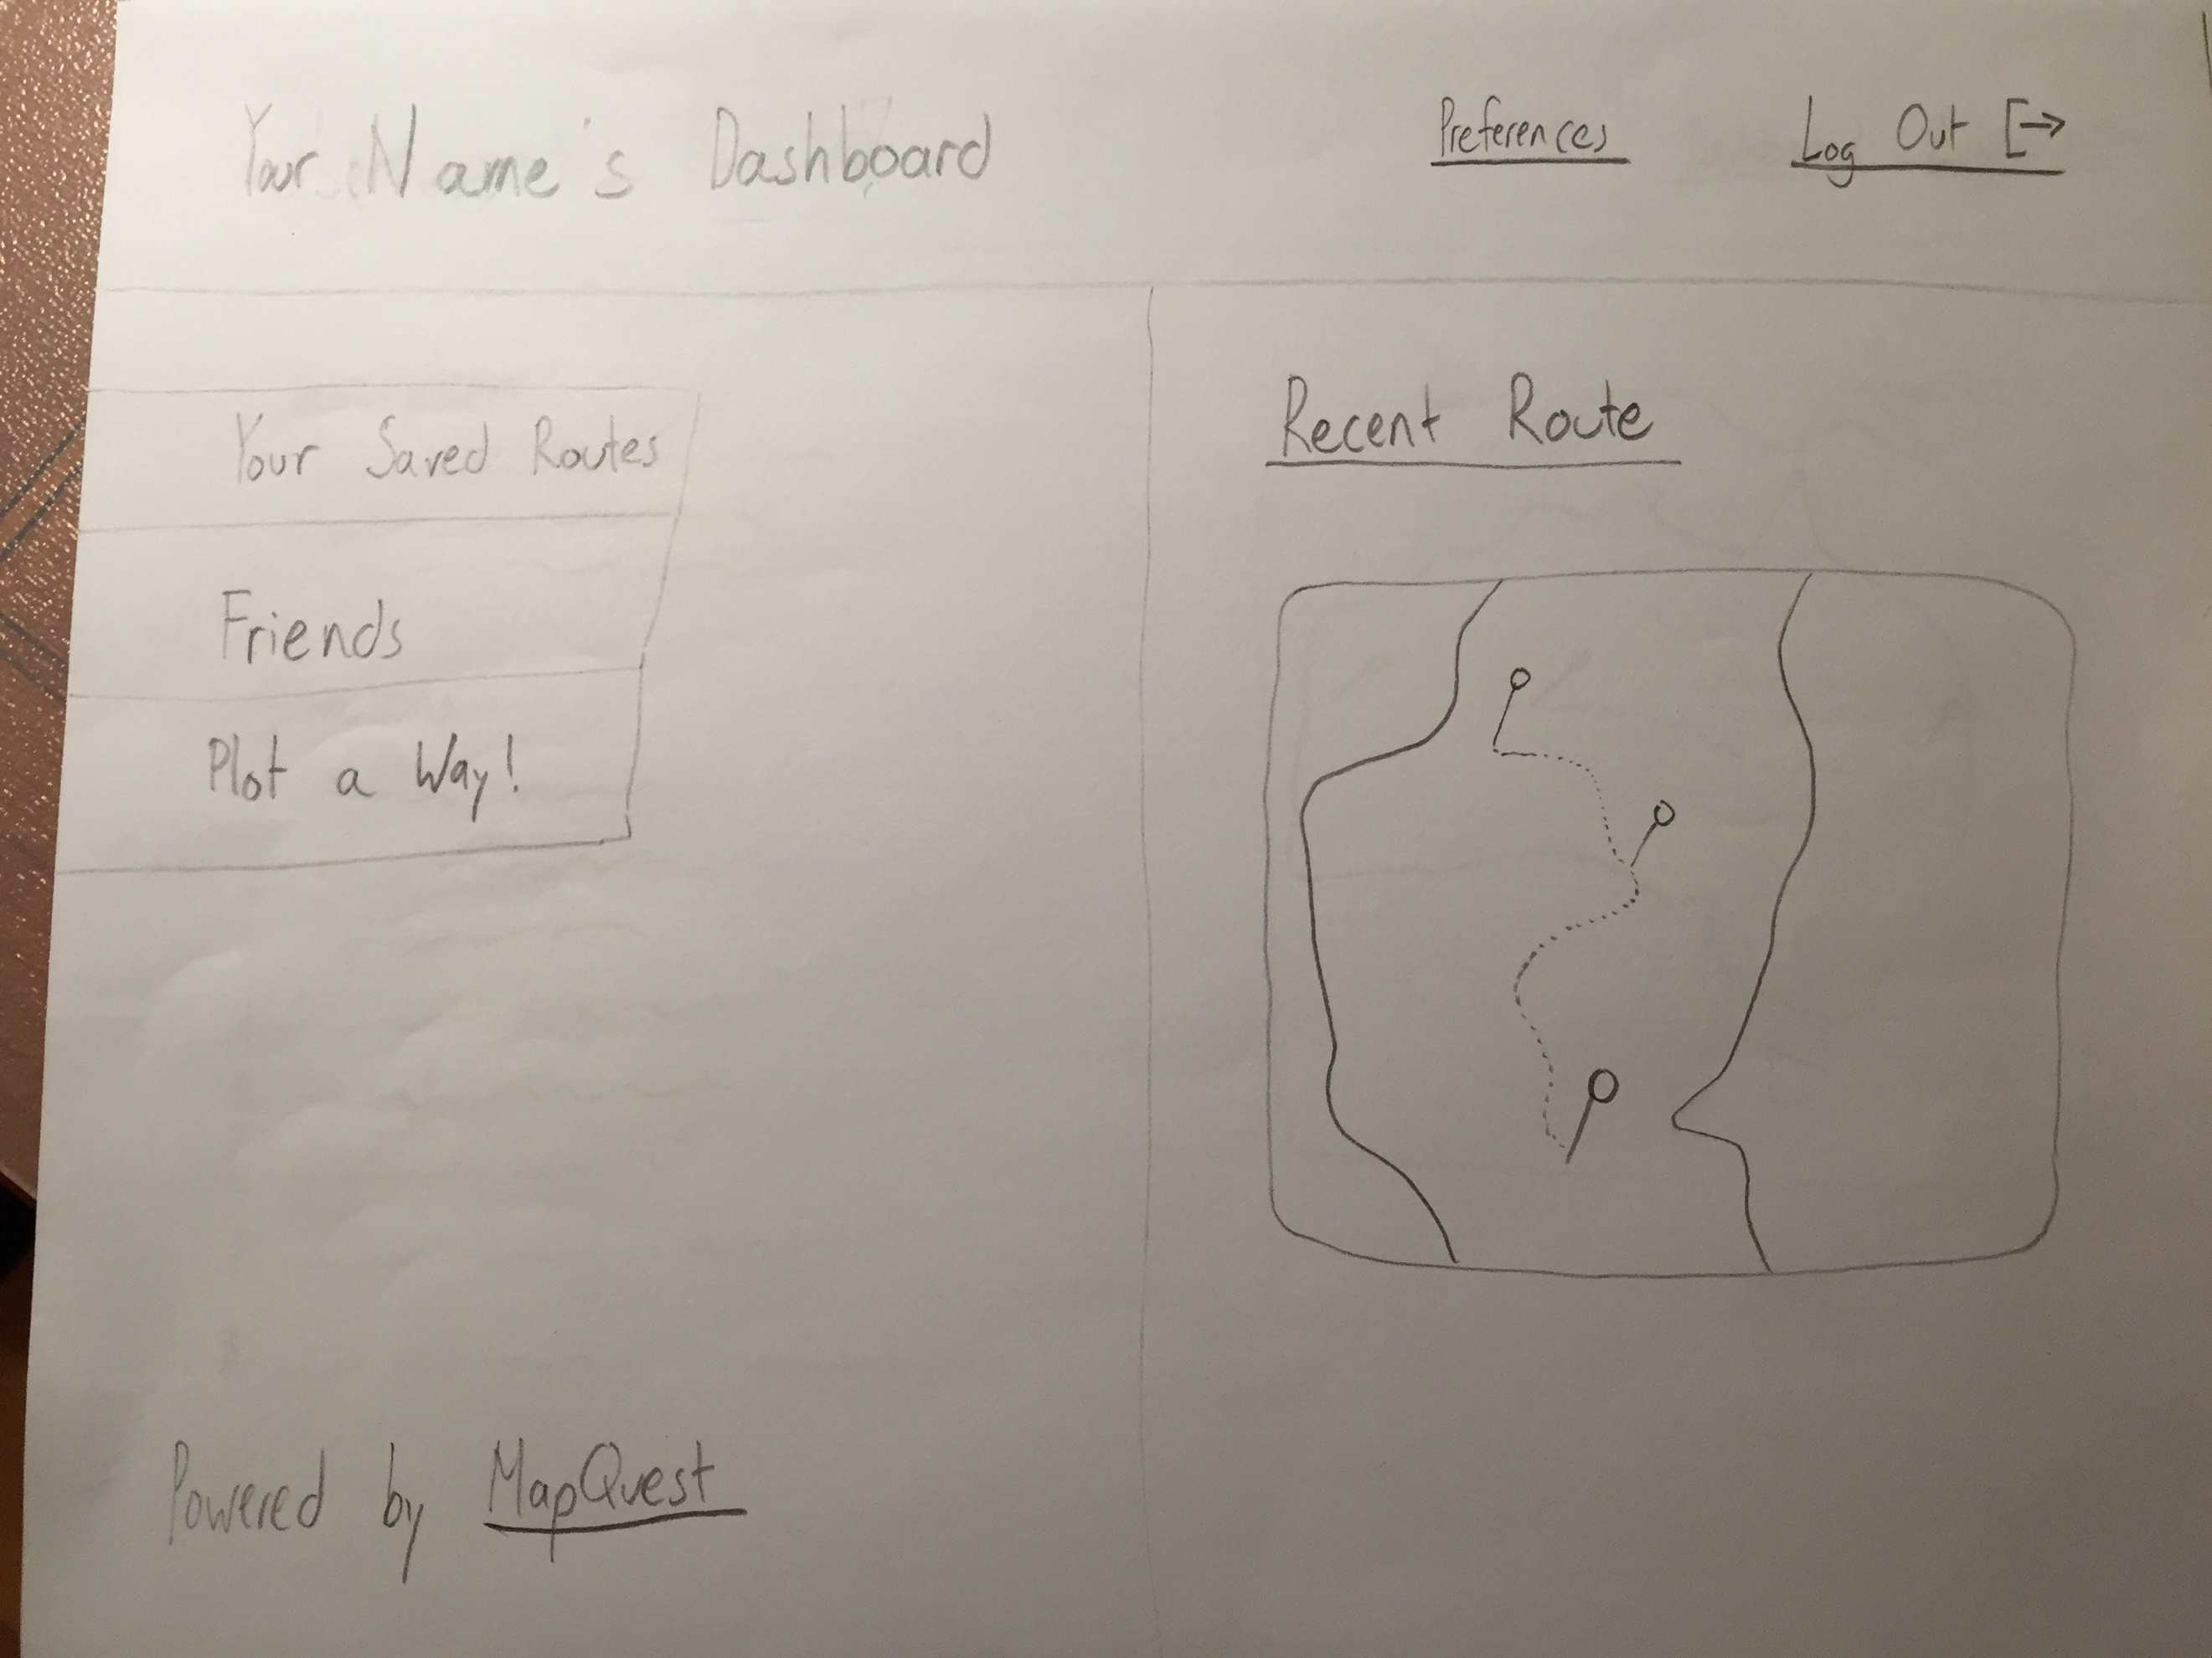 Your Name's Dashboard
Preferences
Log Out
Your Saved Routes
Friends
Plot a Way!
Recent Route
Powered by MapQuest